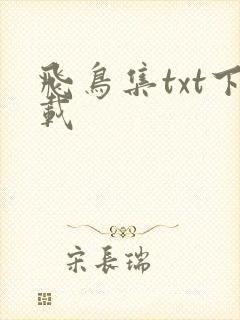 飛鳥集txt下
載
宋長瑞